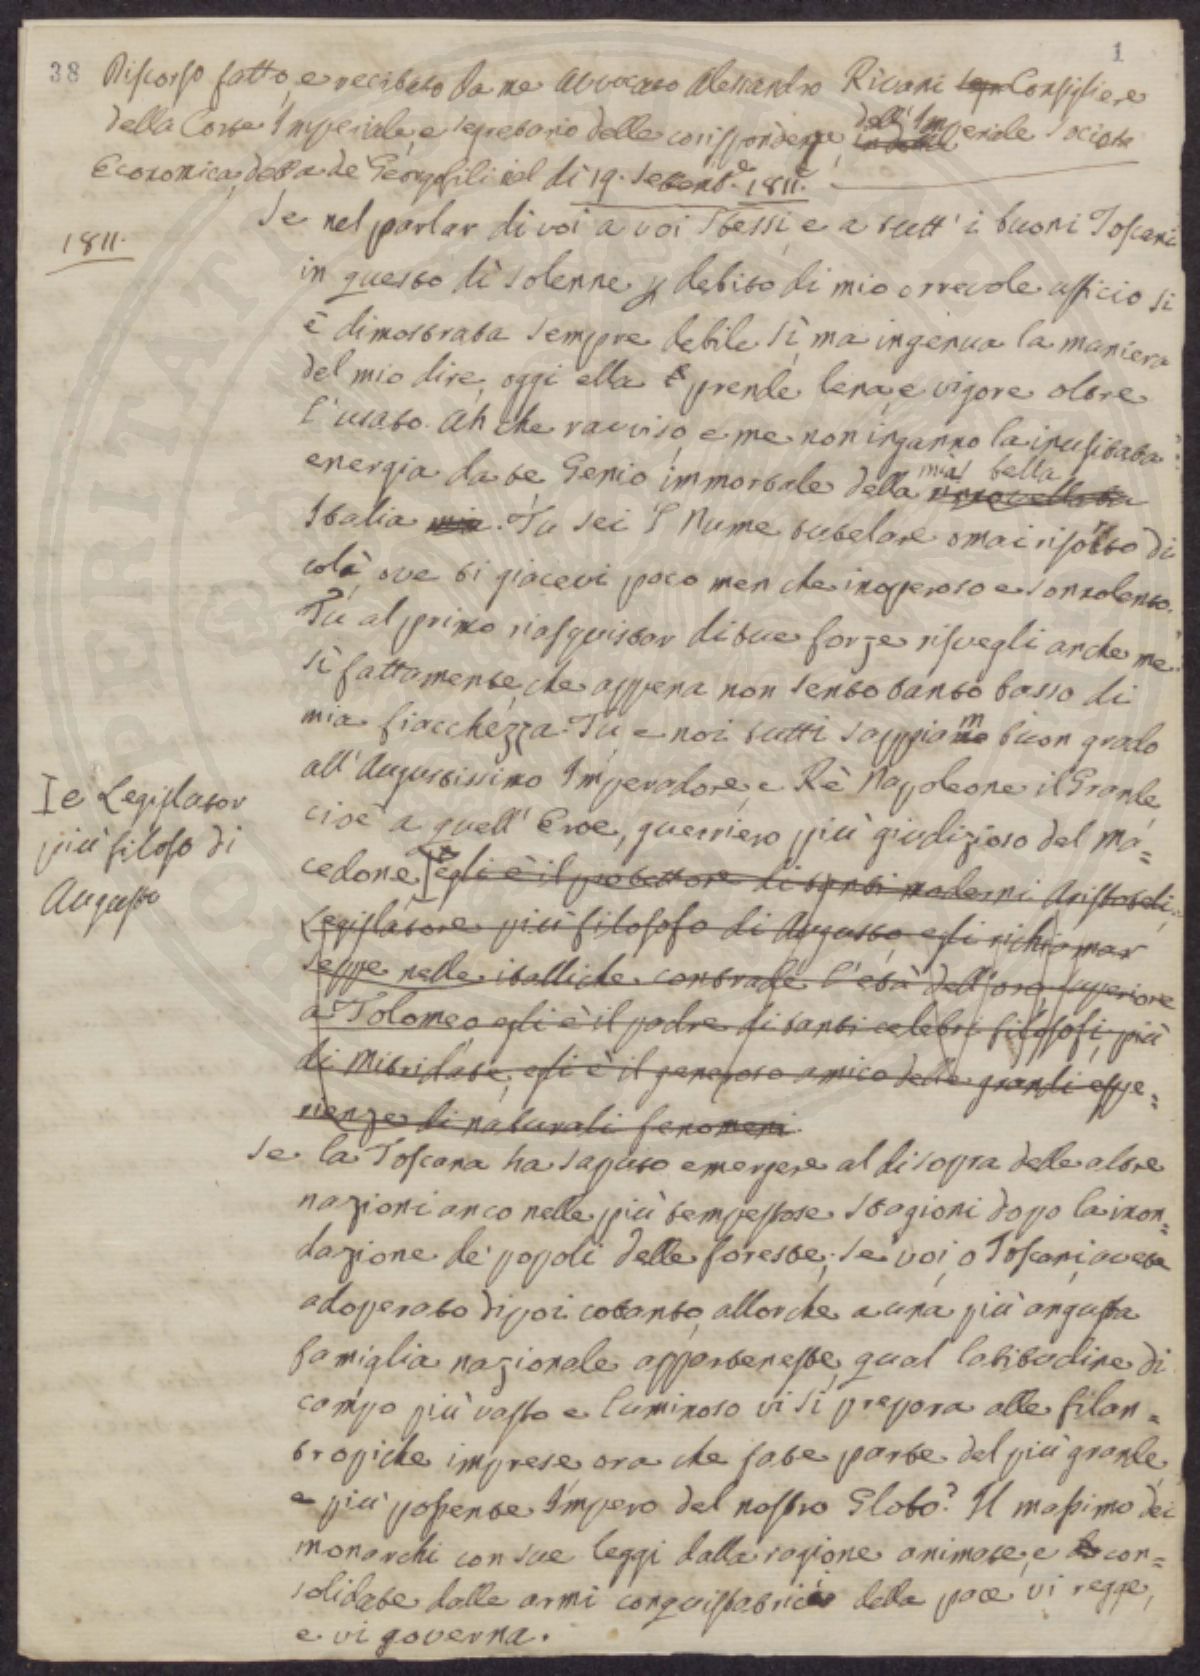 38
1
Discorso fatto, e recitato da me Avvocato Alessandro Rivani Consigliere
della Corte Imperiale, e segretario delle corrispondenze dell'Imperiale Società
Economica, detta de' Georgofili il dì 19. Settemb.e 1811.
1811.
Se nel parlar di voi a voi stessi, e a tutt' i buoni Toscani
in questo dì solenne p debito di mio orrevole ufficio si
è dimostrata sempre debile sì, ma ingenua la maniera
del mio dire, oggi ella prende lena, e vigore oltre
l'usato. Ah che ravviso, e me non inganno la inusitata
energia da te Genio immortale della mia bella
Italia mia. Tu sei 'l Nume tutelare omai risorto di
colà ove ti giacevi poco men che inoperoso e sonnolento.
Tu al primo riacquistar di tue forze risvegli anche me
sì fattamente, che appena non sento tanto basso di
mia fiacchezza. Tu e noi tutti sappiam buon grado
all'Augustissimo Imperadore, e Rè Napoleone il Grande,
cioè a quell' Eroe, guerriero più giudizioso del Ma=
cedone, egli è il protettore di tanti moderni Aristoteli,
I e Legislator
più filosofo di
Augusto
Legislatore più filosofo di Augusto, egli richiamar
seppe nelle italliche contrade l'età dell'oro, superiore
a Tolomeo egli è il padre di tanti celebri filosofi, più
di Mitridate, egli è il generoso amico delle grandi espe=
rienze di naturali fenomeni.
Se la Toscana ha saputo emergere al disopra delle altre
nazioni anco nelle più tempestose stagioni dopo la inon=
dazione de' popoli delle foreste; se voi, o Toscani, avete
adoperato dipoi cotanto, allorche a una più angusta
famiglia nazionale apparteneste, qual latitudine di
campo più vasto e luminoso vi si prepara alle filan=
tropiche imprese, ora che fate parte del più grande,
e più possente Impero del nostro Globo? Il massimo dei
monarchi con sue leggi dalla ragione animate, e con=
solidate dalle armi conquistatrici della pace vi regge,
e vi governa.